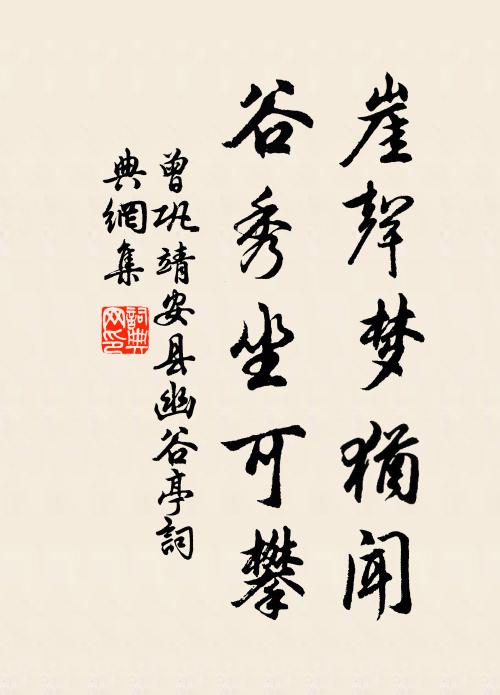 崖聲梦猶闻
谷秀坐可攀
曾巩靖安县幽谷亭詞
典網集
詞典
网印